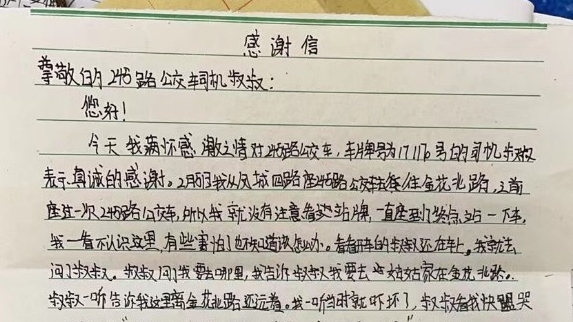 感谢信
尊敬的245路公交车司机叔叔：
您好！
今天我满怀感激之情对245路公交车，车牌号为17176号的司机叔叔
表示真诚的感谢。2月5日我从凤城四路座245路公交车去住金花北路，之前
座过一次245路公交车，所以我就没有注意看这站牌，一直座到了终点站一下车
我一看不认识这里，有些害怕也不知道该怎么办。看看开车的叔叔还在车上。我就去
问了叔叔。叔叔问了我要去哪里，我告诉叔叔我要去 姑姑家在金花北路。
叔叔一听告诉我这里离金花北路还远着。我一听当时就吓坏了，叔叔看我快哭